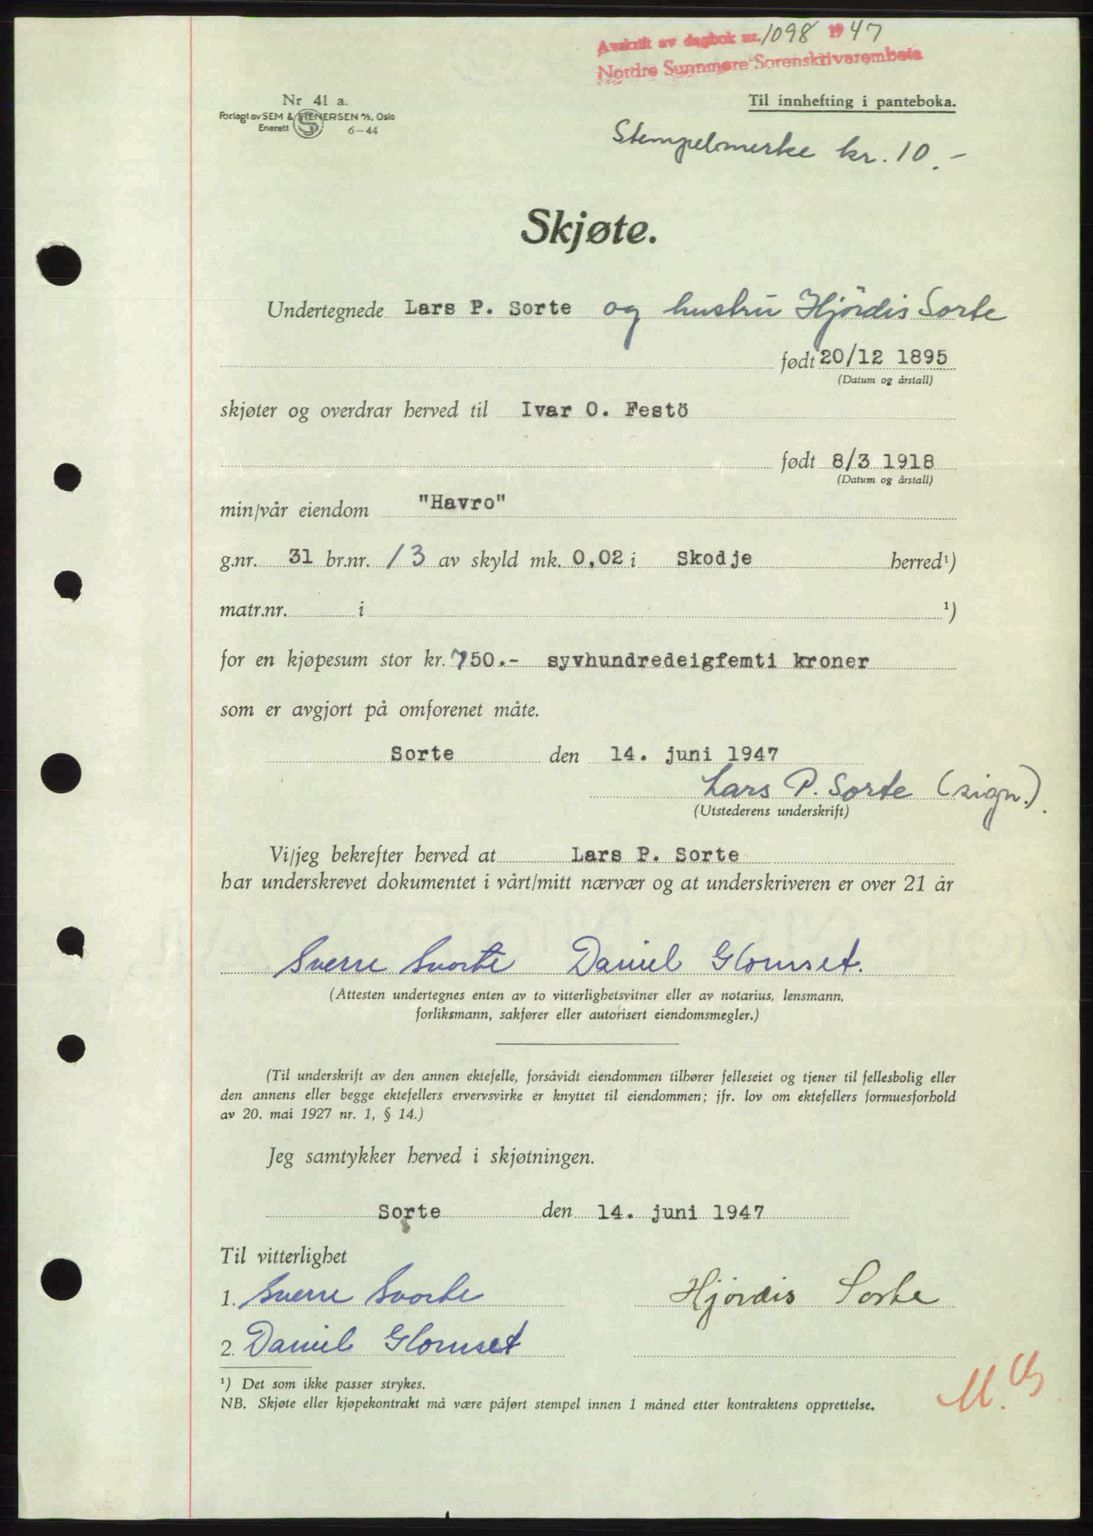 Avskrift av dagbok nr. 1098 1947
Nordre Sunnmøre Sorenskrivarembete
Nr 41 a.
Forlagt av SEM & STENERSEN A/S, Oslo
Enerett 6-44
Til innhefting i panteboka.
Stempelmerke kr. 10.-
Skjøte.
Undertegnede Lars P. Sorte og hustru Hjördis Sorte
født 20/12 1895
(Datum og årstall)
skjøter og overdrar herved til Ivar O. Festö
født 8/3 1918
(Datum og årstall)
min/vår eiendom "Havro"
g.nr. 31 br.nr. 13 av skyld mk. 0,02 i Skodje herred¹)
matr.nr. i ¹)
for en kjøpesum stor kr. 750.- syvhundredeigfemti kroner
som er avgjort på omforenet måte.
Sorte den 14. juni 1947
Lars P. Sorte (sign.).
(Utstederens underskrift)
Vi/jeg bekrefter herved at Lars P. Sorte
har underskrevet dokumentet i vårt/mitt nærvær og at underskriveren er over 21 år
Sverre Svorte Daniel Glomset.
(Attesten undertegnes enten av to vitterlighetsvitner eller av notarius, lensmann,
forliksmann, sakfører eller autorisert eiendomsmegler.)
(Til underskrift av den annen ektefelle, forsåvidt eiendommen tilhører felleseiet og tjener til fellesbolig eller
den annens eller begge ektefellers ervervsvirke er knyttet til eiendommen; jfr. lov om ektefellers formuesforhold
av 20. mai 1927 nr. 1, § 14.)
Jeg samtykker herved i skjøtningen.
Sorte den 14. juni 1947
Til vitterlighet
1. Sverre Svorte Hjørdis Sorte
2. Daniel Glomset
¹) Det som ikke passer strykes.
NB. Skjøte eller kjøpekontrakt må være påført stempel innen 1 måned etter kontraktens opprettelse.